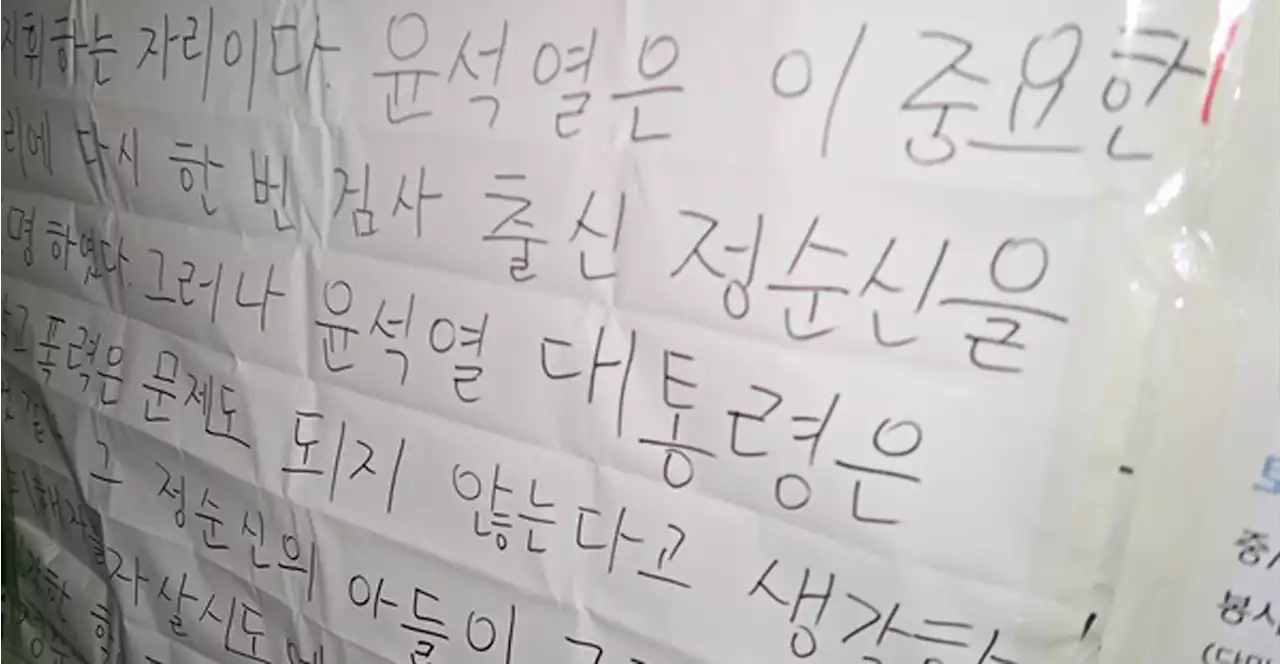 지휘하는 자리이다. 윤석열은 이 중요한
리에 다시 한 번 검사 출신 정순신을
명하였다. 그러나 윤석열 대통령은
폭력은 문제도 되지 않는다고 생각
그 정순신의 아들이
해자를 자살시도에
봉사